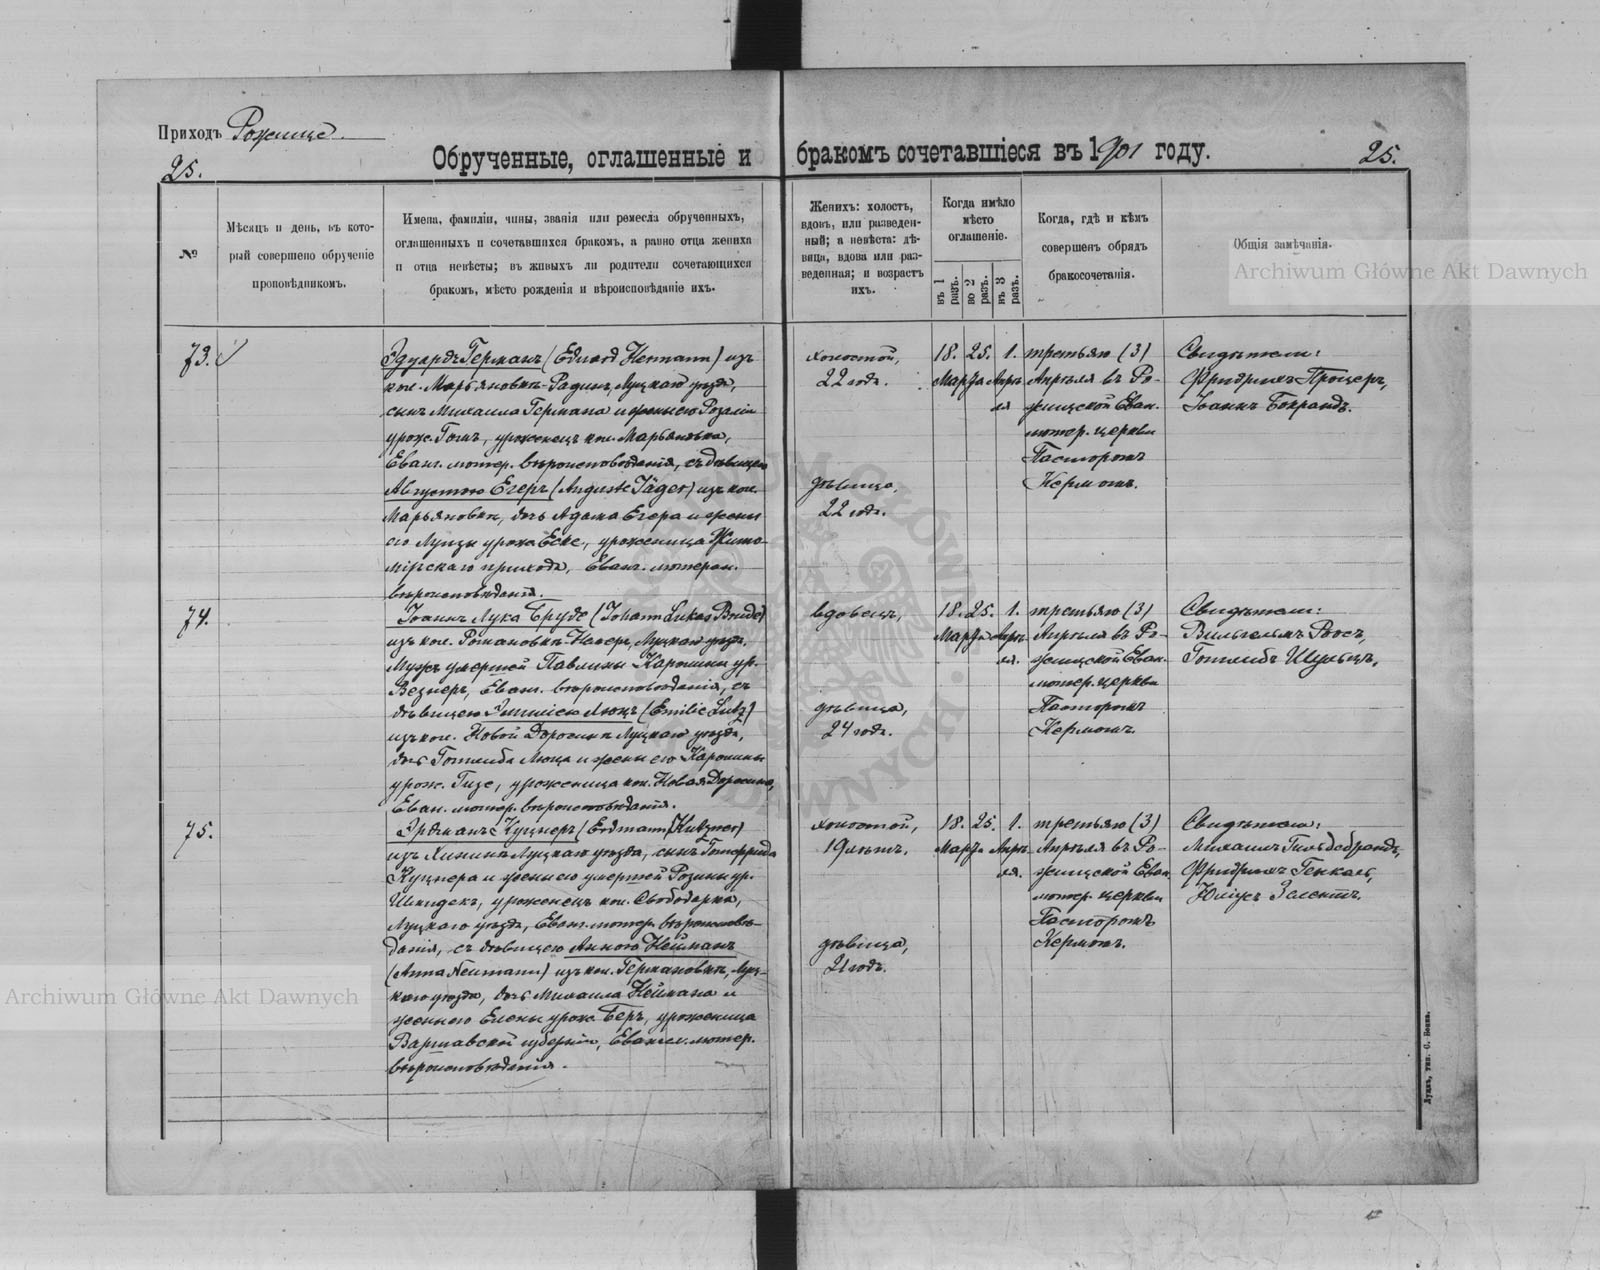 Приходъ Рожище.
25.
Обрученные, оглашенные и бракомъ сочетавшіеся въ 1901 году.
25.
№
Мѣсяцъ и день, въ кото-
рый совершено обрученіе
проповѣдникомъ.
Имена, фамиліи, чины, званія или ремесла обрученныхъ,
оглашенныхъ и сочетавшихся бракомъ, а равно отца жениха
и отца невѣсты; въ живыхъ ли родители сочетающихся
бракомъ, мѣсто рожденія и вѣроисповѣданіе ихъ.
Женихъ: холостъ,
вдовъ, или разведен-
ный; а невѣста: дѣ-
вица, вдова или раз-
веденная; и возрастъ
ихъ.
Когда имѣло
мѣсто
оглашеніе.
въ 1 разъ.
во 2 разъ.
въ 3 разъ.
Когда, гдѣ и кѣмъ
совершенъ обрядъ
бракосочетанія.
Общія замѣчанія.
Archiwum Główne Akt Dawnych
73.
Эдуардъ Германъ (Eduard Hermann) изъ
кол. Марьяновка-Радинъ, Луцкаго уѣзда,
сынъ Михаила Германа и жены его Розаліи
урож. Гольцъ, уроженецъ кол. Марьяновка,
Еванг. лютер. вѣроисповѣданія, съ дѣвицею
Августою Егеръ (Auguste Jäger) изъ кол.
Марьяновки, дочь Адама Егера и жены
его Луизы урож. Еске, уроженица Жито-
мірскаго прихода, Еванг. лютеран.
вѣроисповѣданія.
холостой,
22 годъ.
дѣвица,
22 годъ.
18. 25. 1.
Марта Апрѣ-
ля
третьяго (3)
Апрѣля въ Ро-
жищской Еван.
лютер. церкви
Пасторомъ
Кермомъ.
Свидѣтели:
Фридрихъ Процеръ,
Іоаннъ Бокрандъ.
74.
Іоаннъ Лука Бруде (Johann Lukas Brude)
изъ кол. Романовка Луцкаго уѣзда,
Мужъ умершей Павлины Каролины ур.
Везнеръ, Еванг. вѣроисповѣданія, съ
дѣвицею Эмиліею Люцъ (Emilie Lutz)
изъ кол. Новой Доросини Луцкаго уѣзда,
дочь Готлиба Люца и жены его Каролины
урож. Гизе, уроженица кол. Новая Доросиня,
Еван. лютер. вѣроисповѣданія.
вдовецъ,
дѣвица,
24 годъ.
18. 25. 1.
Марта Апрѣ-
ля.
третьяго (3)
Апрѣля въ Ро-
жищской Еван.
лютер. церкви
Пасторомъ
Кермомъ.
Свидѣтели:
Вильгельмъ Роосъ,
Готлибъ Шульцъ.
75.
Эрдманъ Куцнеръ (Erdmann Kutzner)
изъ Луцкаго уѣзда, сынъ Готфрида
Куцнера и жены его умершей Розины ур.
Шкидекъ, уроженецъ кол. Свободарка,
Луцкаго уѣзда, Еванг. лютер. вѣроисповѣ-
данія, съ дѣвицею Анною Нейманъ
(Anna Neumann) изъ кол. Германовки, Луц-
каго уѣзда, дочь Михаила Неймана и
жены его Елены урож. Беръ, уроженица
Варшавской губерніи, Евангел. лютер.
вѣроисповѣданія.
холостой,
19 лѣтъ,
дѣвица,
21 годъ.
18. 25. 1.
Марта Апрѣ-
ля.
третьяго (3)
Апрѣля въ Ро-
жищской Еван.
лютер. церкви
Пасторомъ
Кермомъ.
Свидѣтели:
Михаилъ Гильдебрандъ,
Фридрихъ Генкель,
Юліусъ Зелентъ.
Archiwum Główne Akt Dawnych
Луцкъ, тип. С. Бонка.